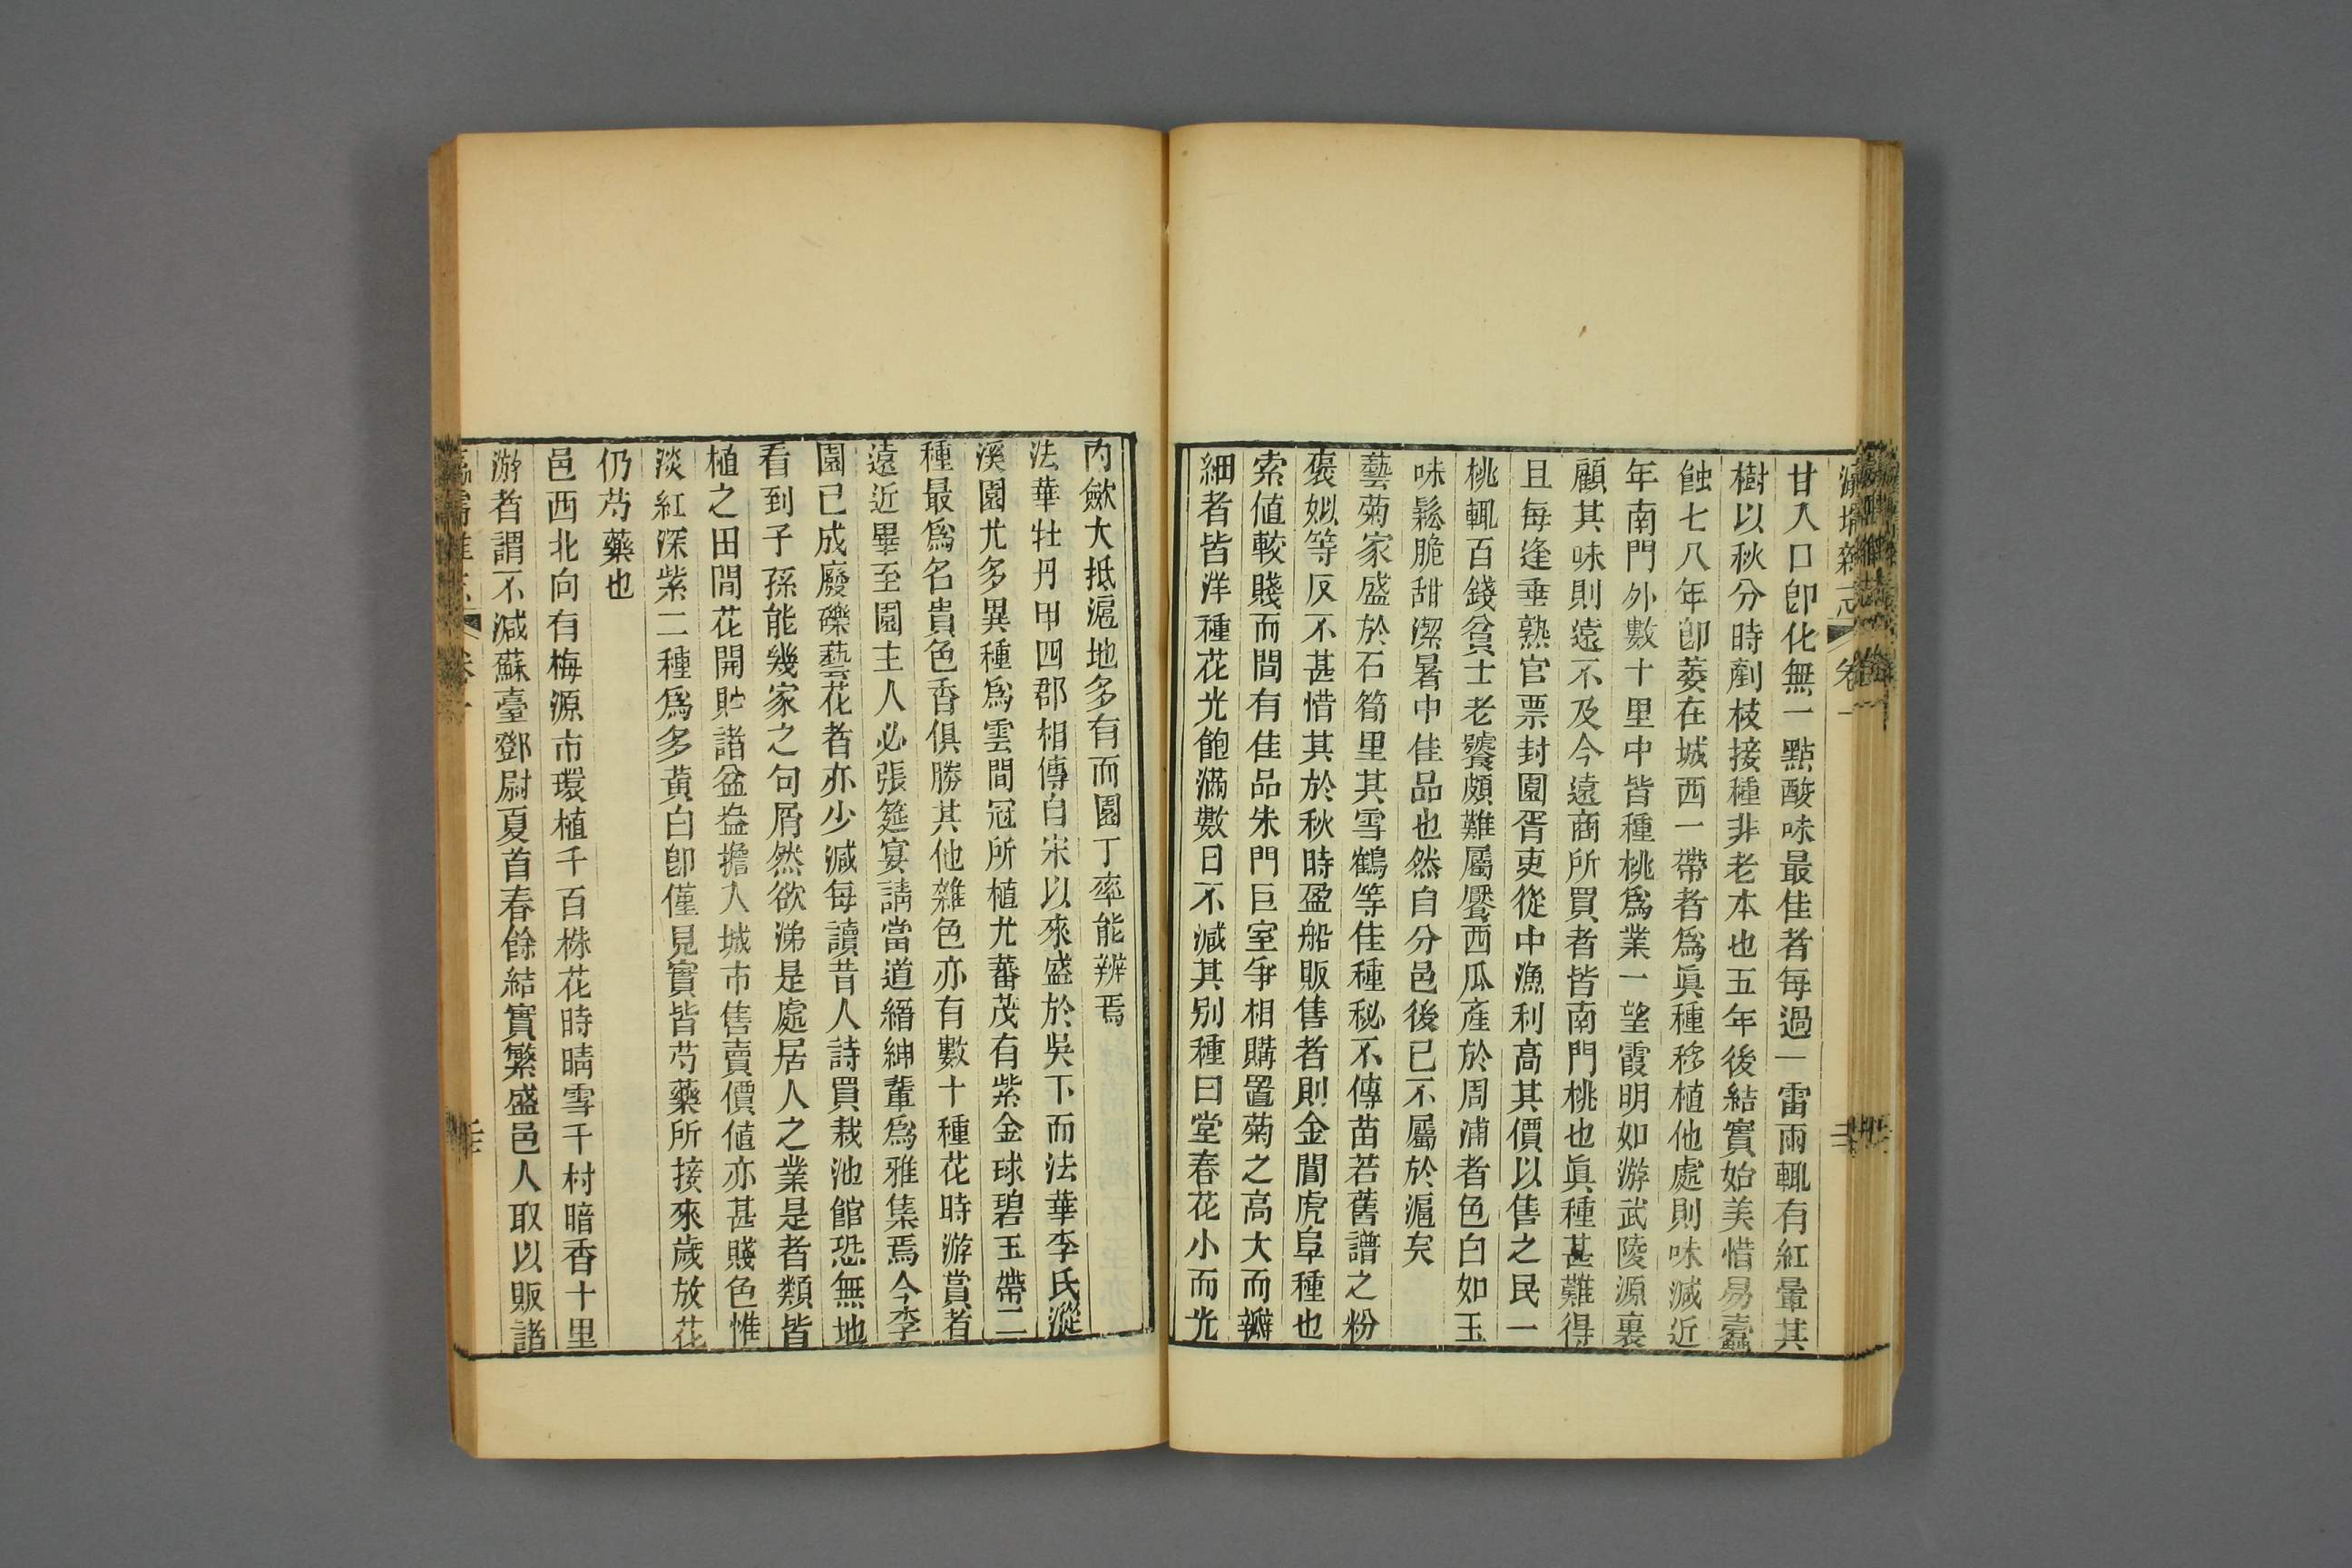 甘入口卽化無一點酸味最佳者每過一雷雨輒有紅暈其
樹以秋分時劀枝接種非老本也五年後結實始美惜易蠹
蝕七八年卽萎在城西一帶者爲眞種移植他處則味減近
年南門外數十里中皆種桃爲業一望霞明如游武陵源裏
顧其味則遠不及今遠商所買者皆南門桃也眞種甚難得
且每逢垂熟官票封園胥吏從中漁利高其價以售之民一
桃輒百錢貧士老饕頗難屬饜西瓜產於周浦者色白如玉
味鬆脆甜潔暑中佳品也然自分邑後已不屬於滬矣
藝菊家盛於石筍里其雪鶴等佳種秘不傳苗若舊譜之粉
褒姒等反不甚惜其於秋時盈船販售者則金閶虎阜種也
索値較賤而間有佳品朱門巨室爭相購置菊之高大而瓣
細者皆洋種花光飽滿數日不減其別種曰堂春花小而光
內歛大抵滬地多有而園丁率能辨焉
法華牡丹甲四郡相傳自宋以來盛於吳下而法華李氏漎
溪園尤多異種爲雲間冠所植尤蕃茂有紫金球碧玉帶二
種最爲名貴色香俱勝其他雜色亦有數十種花時游賞者
遠近畢至園主人必張筵宴請當道縉紳輩爲雅集焉今李
園已成廢礫藝花者亦少減每讀昔人詩買栽池館恐無地
看到子孫能幾家之句屑然欲涕是處居人之業是者類皆
植之田間花開貯諸盆盎擔入城市售賣價値亦甚賤色惟
淡紅深紫二種爲多黃白卽僅見實皆芍藥所接來歲放花
仍芍藥也
邑西北向有梅源市環植千百株花時晴雪千村暗香十里
游者謂不減蘇臺鄧尉夏首春餘結實繁盛邑人取以販諸